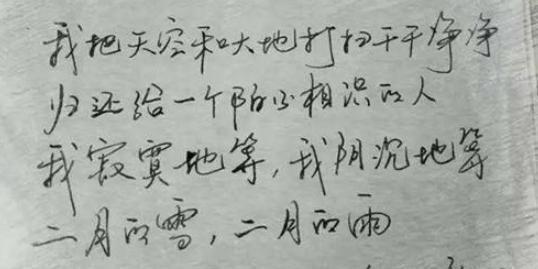 我把天空和大地打扫干干净净
归还给一个陌不相识的人
我寂寞地等,我阴沉地等
二月的雪,二月的雨